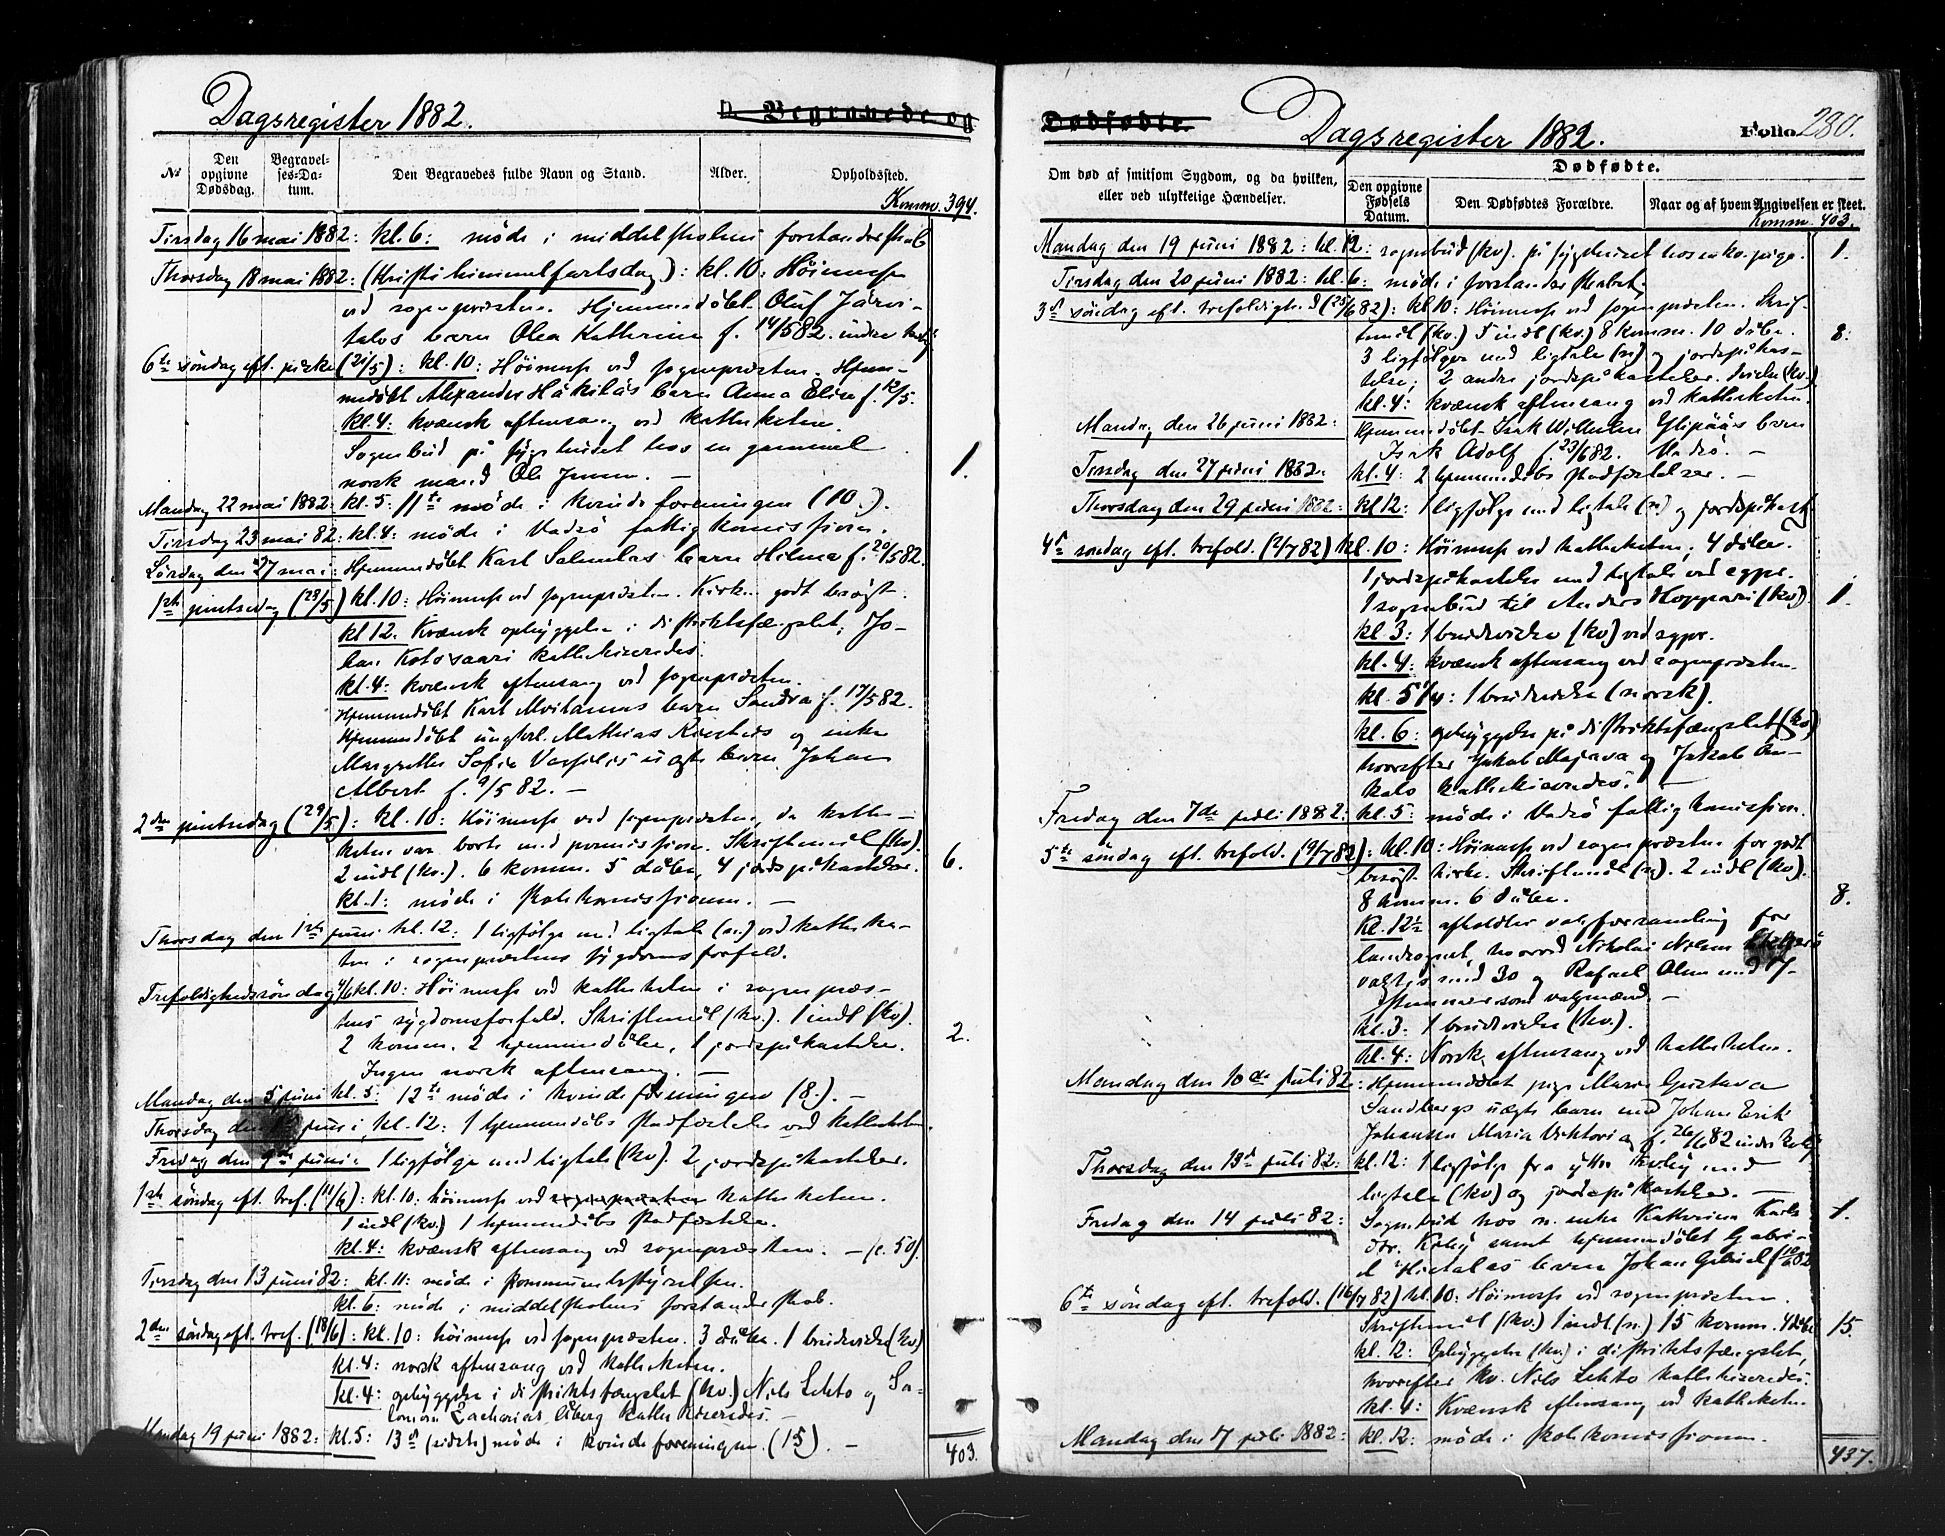 Dagsregister 1882.
D. Begravede og
№
Den opgivne Dødsdag.
Begravelses-Datum.
Den Begravedes fulde Navn og Stand.
Alder.
Opholdssted.
Komm. 394.
Tirsdag 16 mai 1882: kl. 6: møde i middelskolens forstanderskab
Thorsdag 18 mai 1882: (Kristi himmelfartsdag): kl. 10: Høimesse
ved sognepræsten. Hjemmedøbt Oluf Järvi-
talos barn Olea Katherine f. 14/5 82. indre
6te søndag eft. påske (21/5): kl. 10: Høimesse ved sognepræsten. Hjem-
medøbt Alexander Håkiläs barn Anna Elisa f. /5.
kl. 4: kvænsk aftensang ved katheketen.
Sognebud på sygehuset hos en gammel
norsk mand Ole Jensen. —
1.
Mandag 22 mai 1882: kl. 5: 11te møde i kvindeforeningen (10.).
Tirsdag 23 mai 82: kl. 4: møde i Vadsø fattigkomission.
Lørdag den 27 mai: Hjemmedøbt Karl Salmelas barn Hilma f. 20/5 82.
1ste pintsedag (28/5) kl. 10: Høimesse ved sognepræsten. Kirken godt besøgt.
kl 12. Kvænsk opbyggelse i distriktsfængslet; Jo-
han Kotosaari kathekiseredes.
kl. 4: kvænsk aftensang ved sognepræsten.
Hjemmedøbt Karl barn Sandra f. 17/5 82.
Hjemmedøbt ungkarl Mathias og enke
Margrethe Sofie uægte barn Johan
Albert f. 9/5 82. —
2den pintsedag (29/5): kl. 10: Høimesse ved sognepræsten, da kathe-
keten var borte med permission. Skriftemål (kv).
2 indl (kv.). 6 komm. 5 dåbe, 4 jordspåkastelser.
6.
kl. 1: møde i skolekomissionen. —
Thorsdag den 1ste juni kl. 12: 1 ligfølge med ligtale (n.) ved katheke-
ten i sognepræstens sygdomsforfald.
Trefoldighedssøndag 4/6 kl. 10: Høimesse ved katheketen i sognepræs-
tens sygdomsforfald. Skriftemål (kv.). 1 indl (kv).
2 komm. 2 hjemmedåbe, 1 jordspåkastelse.
2.
Ingen norsk aftensang. —
Mandag den 5 juni kl. 5: 12te møde i kvindeforeningen (8.). —
Thorsdag den juni, kl. 12: 1 hjemmedåbs stadfæstelse ved katheketen.
Fredag den 9de juni: 1 ligfølge med ligtale (kv). 2 jordspåkastelser.
1ste søndag eft. tref. (11/6): kl. 10: høimesse ved sognepræsten katheketen.
1 indl (kv.) 1 hjemmedåbs stadfæstelse.
kl. 4: kvænsk aftensang ved sognepræsten. — (c. 50).
Tirsdag den 13 juni 82: kl. 11: møde i kommunebestyrelsen.
kl. 6: møde i middelskolens forstanderskab.
2den søndag eft. tref. (18/6): kl. 10: høimesse ved sognepræsten. 3 dåbe. 1 brudevielse (kv)
kl. 4: norsk aftensang ved katheketen.
kl. 4: opbyggelse i distriktsfængslet (kv.) Nils Lehto og Sa-
lomon Zacharias Åberg kathekiseredes. —
Mandag 19 juni 1882: kl. 5: 13de (sidste) møde i kvindeforeningen. (15). —
403.
Dødfødte.
Dagsregister 1882.
Folio 280.
Om død af smitsom Sygdom, og da hvilken, eller ved ulykkelige Hændelser.
Dødfødte.
Den opgivne Fødsels Datum.
Den Dødfødtes Forældre.
Naar og af hvem Angivelsen er skeet.
Komm. 403.
Mandag den 19 juni 1882: kl. 12: sognebud (kv). på sygehuset hos en kv. pige.
1.
Tirsdag den 20 juni 1882: kl. 6: møde i forstanderskabet.
3die søndag eft. trefoldighed (25/6 82): kl 10: Høimesse ved sognepræsten. Skrif-
temål (kv.) 5 indl (kv) 8 komm. 10 dåbe.
8.
3 ligfølger med ligtale (n) og jordspåkas-
telse; 2 andre jordspåkastelser. (kv.)
kl. 4: kvænsk aftensang ved katheketen.
Mandag den 26 juni 1882:
Hjemmedøbt Isak Wilhelm Ylipääs barn
Isak Adolf f. 23/6 82. Vadsø. —
Tirsdag den 27 juni 1882:
kl. 4: 2 hjemmedåbs stadfæstelser. —
Thorsdag den 29 juni 1882:
kl 12: 1 ligfølge med ligtale (n) og jordspåkast.
4de søndag eft. trefold. (2/7 82) kl. 10: Høimesse ved katheketen; 4 dåbe.
1 jordspåkastelse med ligtale ved sgpr.
1 sognebud til Anders Hoppari (kv).
1.
kl. 3: 1 brudevielse (kv) ved sgpr.
kl. 4: kvænsk aftensang ved sognepræsten.
kl. 5 1/4: 1 brudevielse (norsk).
kl. 6: opbyggelse på distriktsfængslet (kv)
hvorefter Jakob Majava og Jakob An-
kalo katheketiseredes. —
Fredag den 7de juli 1882:
kl. 5: møde i Vadsø fattigkomission.
5te søndag eft. trefold. (9/7 82): kl. 10: Høimesse ved sognepræsten for godt
besøgt kirke. Skriftemål (n). 2 indl (kv).
8 komm. 6 dåbe.
8.
kl. 12 1/2 afholdtes valgforsamling for
landsognet, hvorved Nikolai Nilsen
valgtes med 30 og Rafael Olsen med 17
stemmer som valgmænd. —
kl. 3: 1 brudevielse (kv.).
kl. 4: Norsk aftensang ved katheketen.
Mandag den 10de juli 82:
Hjemmedøbt pige Maria Gustava
Sandbergs uægte barn med Johan Erik
Johansen Maria Viktoria f. 26/6 82 indre Kiby
Thorsdag den 13de juli 82:
kl. 12: 1 ligfølge fra ytre Kiby med
ligtale (kv) og jordspåkastelse. —
Fredag den 14 juli 82:
Sognebud hos n. enke Katherina Karls
dtr. Kiby samt hjemmedøbt Gabri-
el Hietalas barn Johan Gabriel f. /6 82
1.
6te søndag eft. trefold. (16/7 82) kl. 10: Høimesse ved sognepræsten.
Skriftemål (kv.) 1 indl. (n.) 15 komm. 4 dåbe
15.
kl. 12: Opbyggelse (kv.) i distriktsfængslet,
hvorefter kv. Nils Lehto katheketiseredes.
kl. 4: Kvænsk aftensang ved katheketen
Mandag den 17 juli 1882:
kl. 12: møde i skolekomissionen.
437.